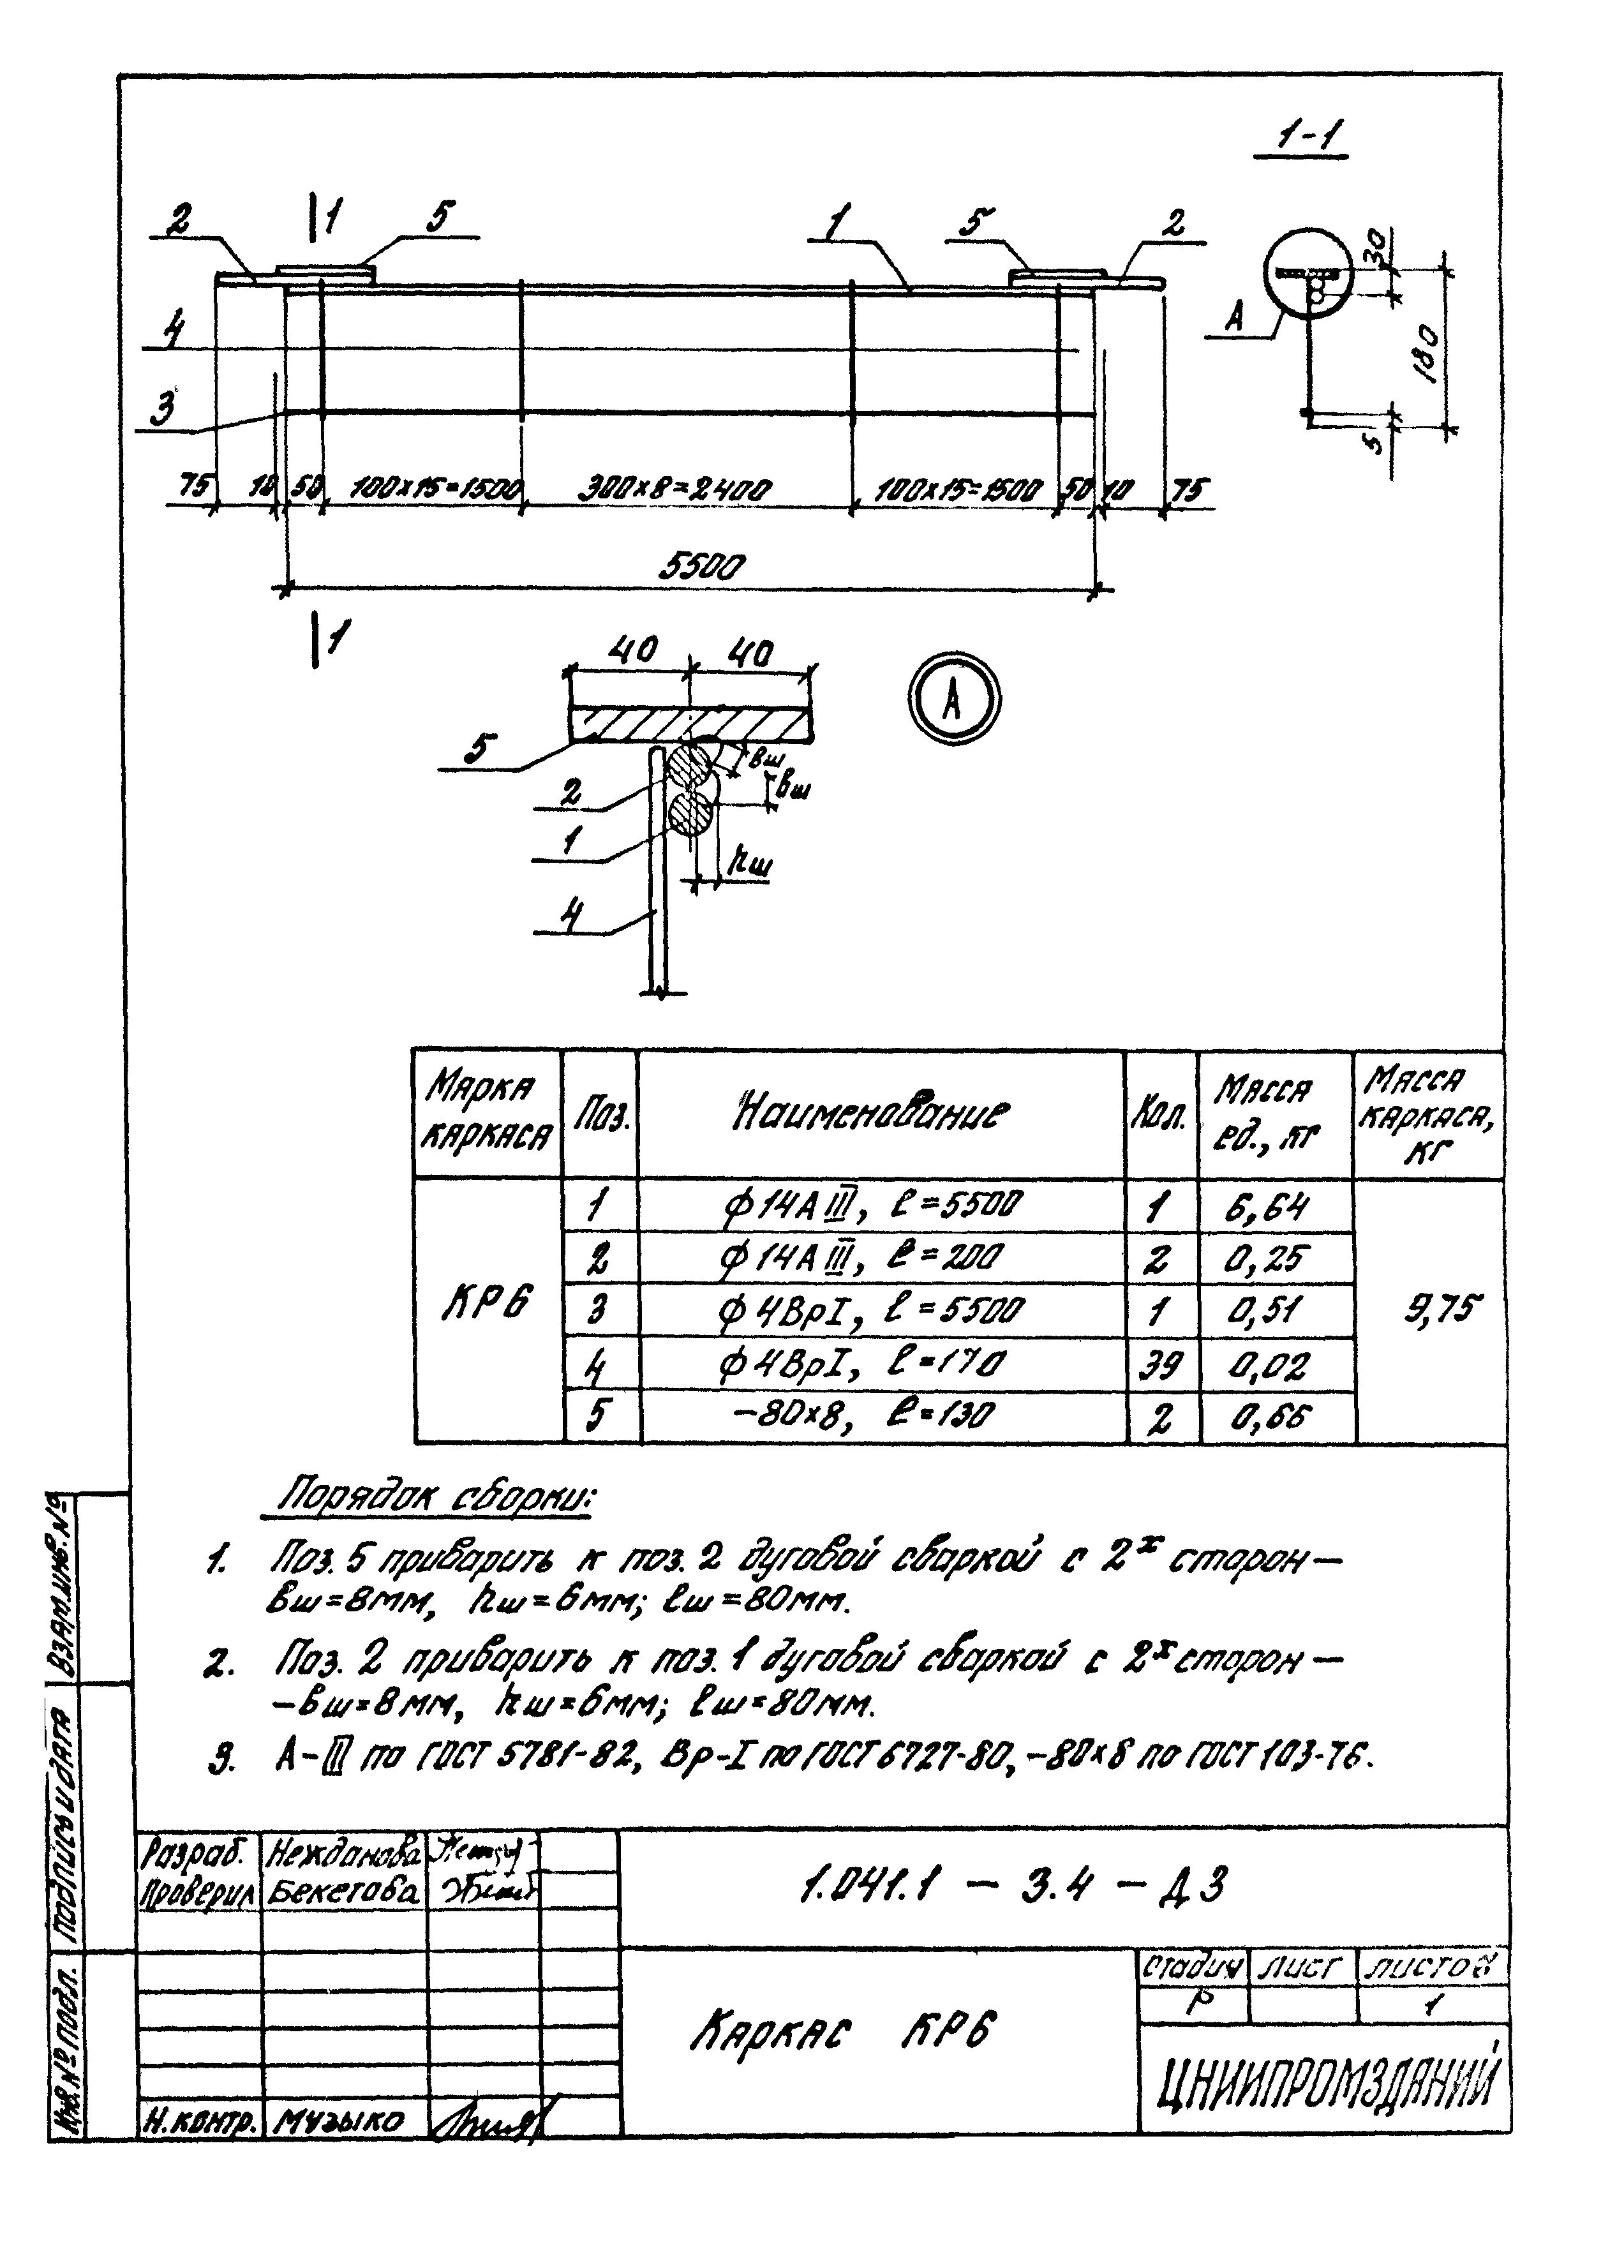 1-1
2
1
5
1
5
2
30
A
180
4
3
5
75 10 50 100х15=1500 300х8=2400 100х15=1500 50 10 75
5500
1
40 40
A
5
вш
2
вш
1
hш
4
Марка каркаса
Поз.
Наименование
Кол.
Масса ед., кг
Масса каркаса, кг
КР6
1 ф14АIII, ℓ=5500 1 6,64
2 ф14АIII, ℓ=200 2 0,25
3 ф4ВрI, ℓ=5500 1 0,51
9,75
4 ф4ВрI, ℓ=170 39 0,02
5 -80х8, ℓ=130 2 0,66
Порядок сборки:
1. Поз. 5 приварить к поз. 2 дуговой сваркой с 2х сторон —
вш=8мм, hш=6мм; ℓш=80мм.
2. Поз. 2 приварить к поз. 1 дуговой сваркой с 2х сторон —
—вш=8мм, hш=6мм; ℓш=80мм.
3. А-III по ГОСТ 5781-82, Вр-I по ГОСТ 6727-80, -80х8 по ГОСТ 103-76.
Взам.инв.№
Подпись и дата
Инв.№ подл.
Разраб. Нежданова
Проверил Бекетова
Н.контр. Музыко
1.041.1 — 3.4 — Д3
Каркас КР6
стадия лист листов
Р 1
ЦНИИПРОМЗДАНИЙ